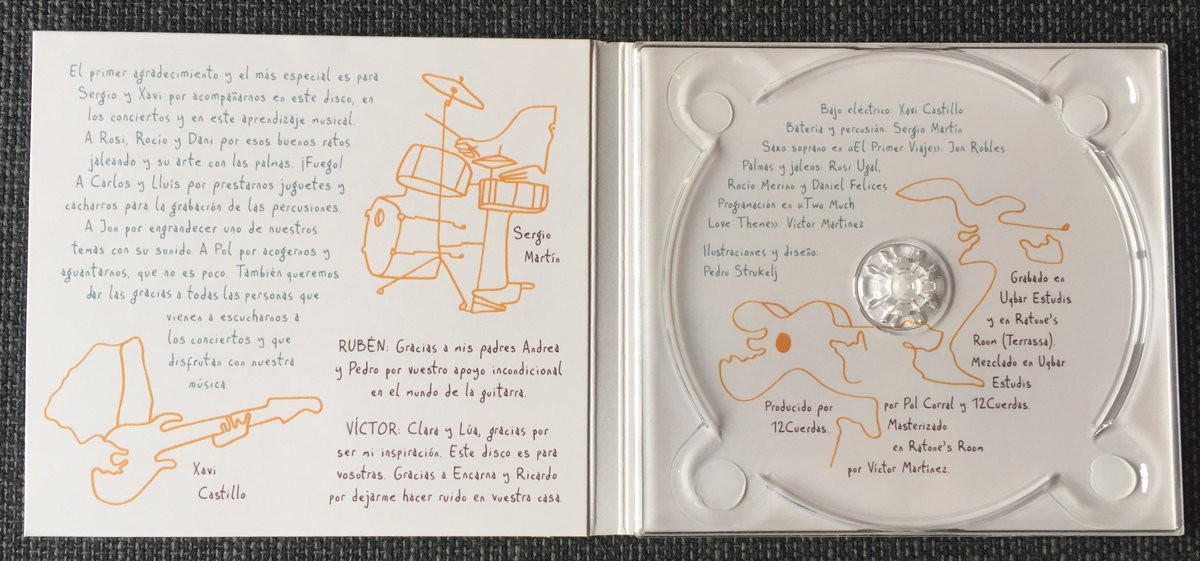 El primer agradecimiento y el más especial es para
Sergio y Xavi por acompañarnos en este disco, en
los conciertos y en este aprendizaje musical.
A Rosi, Rocío y Dani por esos buenos ratos
jaleando y su arte con las palmas. ¡Fuego!
A Carlos y Lluís por prestarnos juguetes y
cacharros para la grabación de las percusiones.
A Jon por engrandecer uno de nuestros
temas con su sonido. A Pol por acogernos y
aguantarnos, que no es poco. También queremos
dar las gracias a todas las personas que
vienen a escucharnos a
los conciertos y que
disfrutan con nuestra
música.
Xavi
Castillo
Sergio
Martín
RUBÉN: Gracias a mis padres Andrea
y Pedro por vuestro apoyo incondicional
en el mundo de la guitarra.
VÍCTOR: Clara y Lúa, gracias por
ser mi inspiración. Este disco es para
vosotras. Gracias a Encarna y Ricardo
por dejarme hacer ruido en vuestra casa.
Bajo eléctrico: Xavi Castillo
Batería y percusión: Sergio Martín
Saxo soprano en «El Primer Viaje»: Jon Robles
Palmas y jaleos: Rosi Ugal,
Rocío Merino y Daniel Felices
Programación en «Two Much
Love Theme»: Víctor Martínez
Ilustraciones y diseño:
Pedro Strukelj
Grabado en
Uqbar Estudis
y en Ratone's
Room (Terrassa).
Mezclado en Uqbar
Estudis
por Pol Corral y 12Cuerdas.
Masterizado
en Ratone's Room
por Víctor Martínez.
Producido por
12Cuerdas.